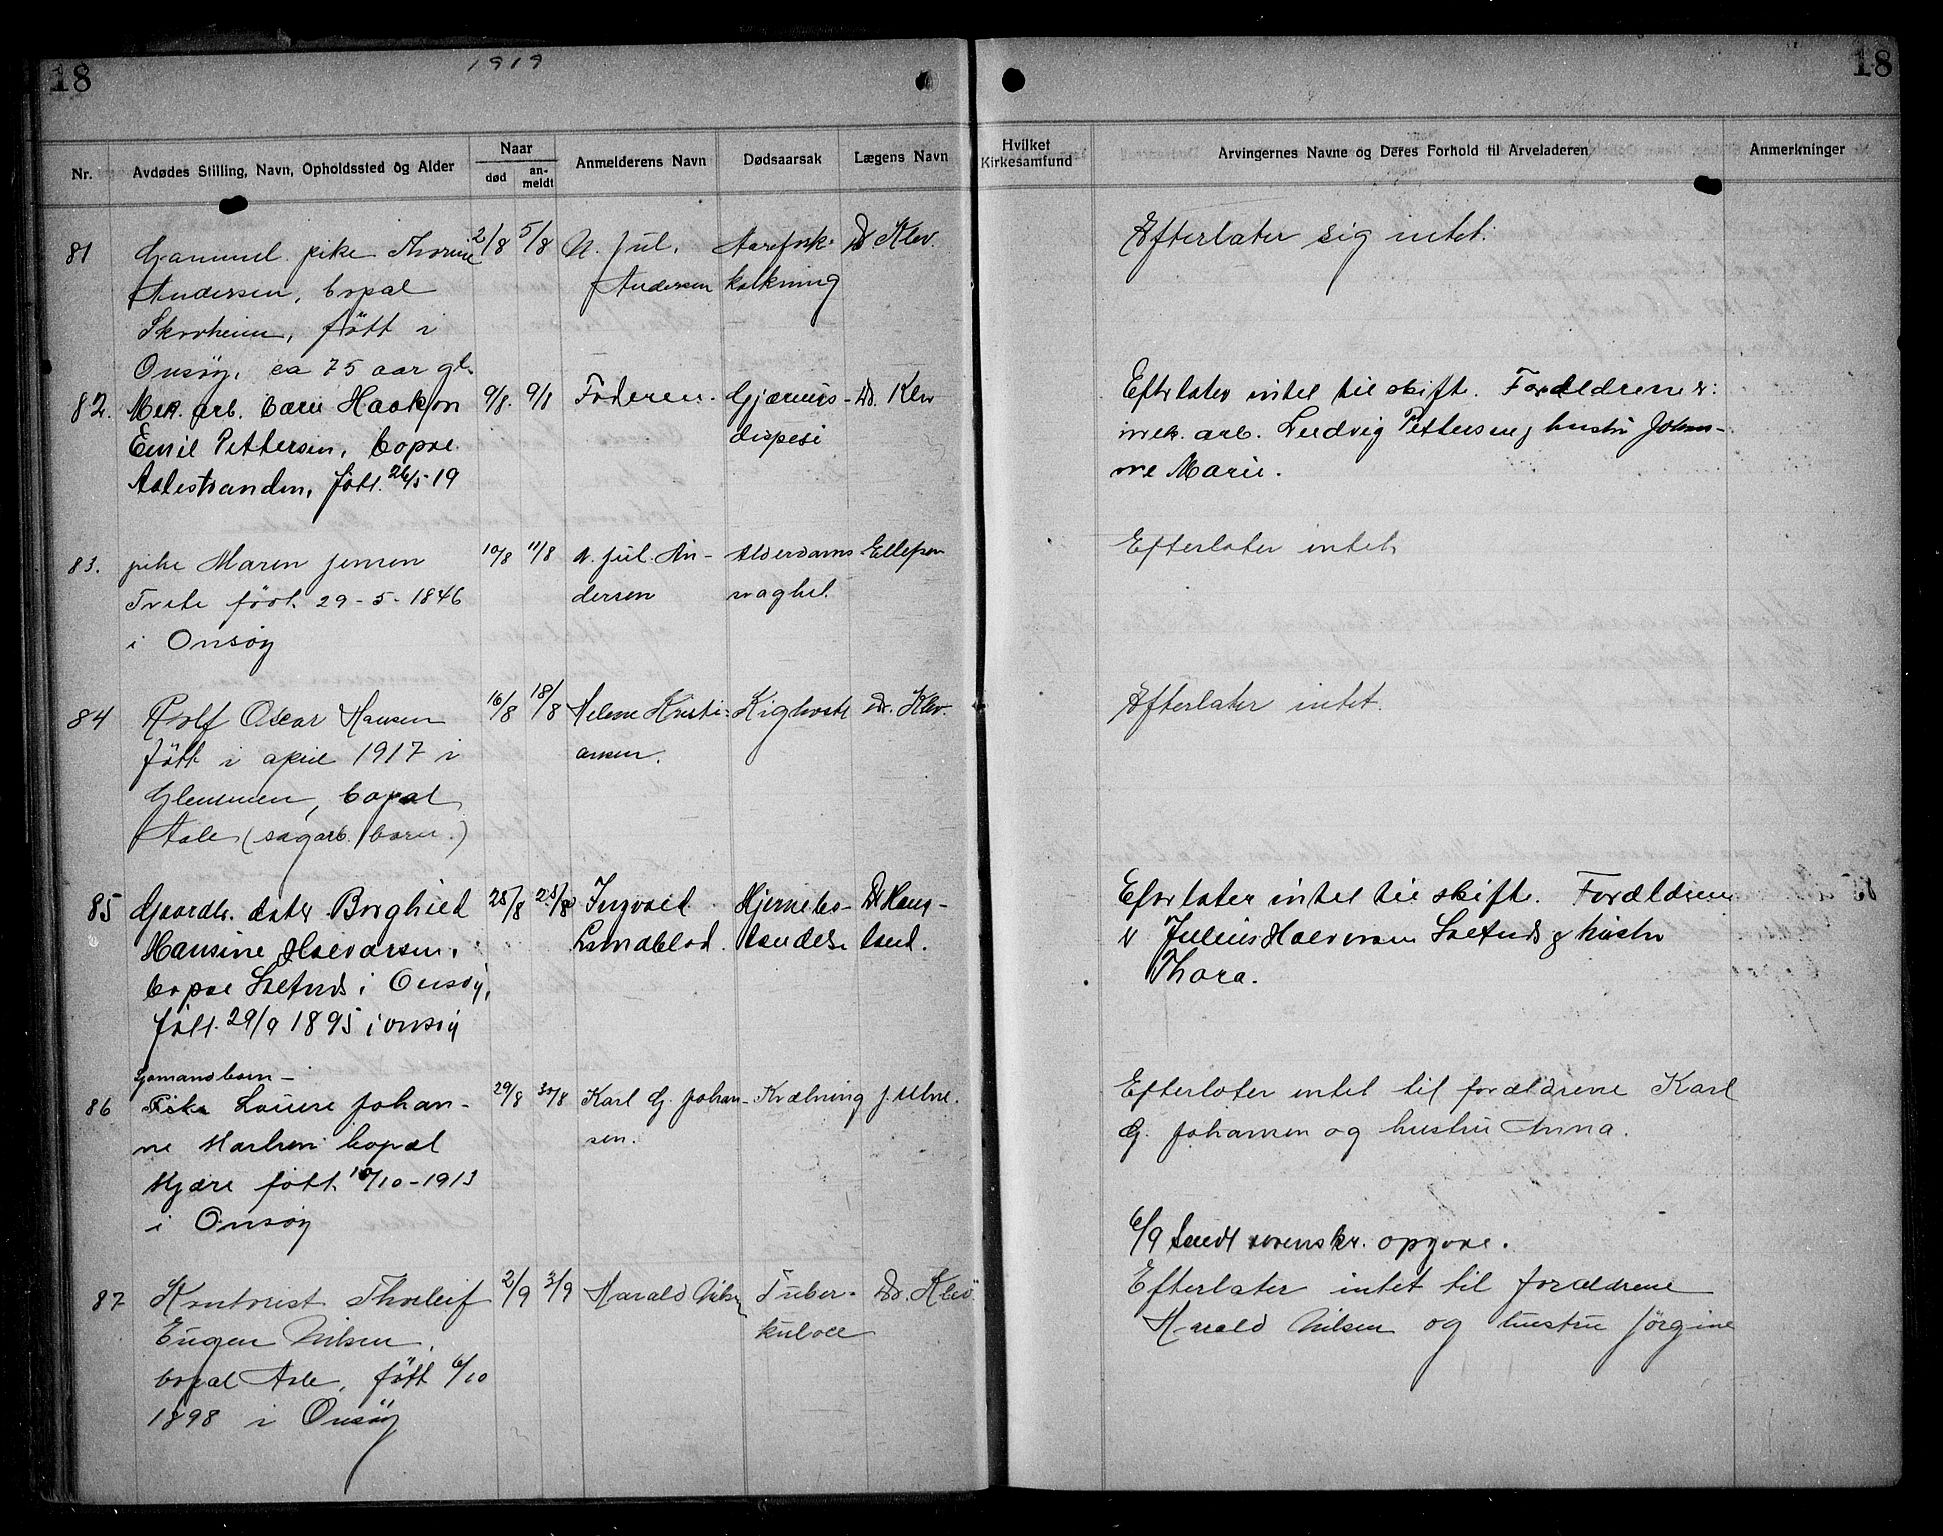 18
1919
18
Nr.
Avdødes Stilling, Navn, Opholdssted og Alder
Naar
død
an-
meldt
Anmelderens Navn
Dødsaarsak
Lægens Navn
Hvilket
Kirkesamfund
Arvingernes Navne og Deres Forhold til Arveladeren
Anmerkninger
81 Gammel pike Thorine 2/8 5/8 N. Jul. Dr Klev. Efterlater sig intet.
Andersen, bopal Andersen kalkning
Skovheim, født i
Onsøy, ca 75 aar gl.
82. Mek. arb. barn Haakon 9/8. 9/8 Faderen. Gjærnings- Dr. Klev Efterlater intet til skifte. Forældrene er:
Emil Pettersen, bopæl mek. arb. Ludvig Pettersen og hustru Johan-
Aalestranden, født 26/5-19 ne Marie.
83. pike Maren Jensen 10/8 11/8 N. Jul. An- Alderdoms Ellefsen Efterlater intet
født 29-5-1846 dersen svaghet.
i Onsøy
84 Rolf Oscar Hansen 16/8 18/8 Helene Kristi- Kighoste Dr. Klev. Efterlater intet.
født i april 1917 i ansen.
Glemmen, bopal
Aale (sagarb. barn.)
85 Gaardbr. dater Borghild 25/8 28/8 Ingvald Hjernebe- Dr Haug- Efterlater intet til skifte. Forældrene
Hansine Halvorsen, Lundblad. tændelse land. er Julius Halvorsen og hustru
bopæl i Onsøy, Thora.
født 29/9 1895 i onsøy
Sjømandbarn-
86 Pike Louise Johan- 29/8 30/8 Karl G. Johan- Kvælning Efterlater intet til forældrene Karl
ne bopæl sen. G. Johansen og hustru Anna.
Mjære født 10/10-1913
i Onsøy
6/9 Sendt sorenskr. opgave.
87 Kontorist Thorleif 2/9 3/9 Harald Nilsen Tuber- Dr. Klev. Efterlater intet til forældrene
Eugen Nilsen, kulose Harald Nilsen og hustru Jørgine
bopal Aale, født 6/10
1898 i Onsøy